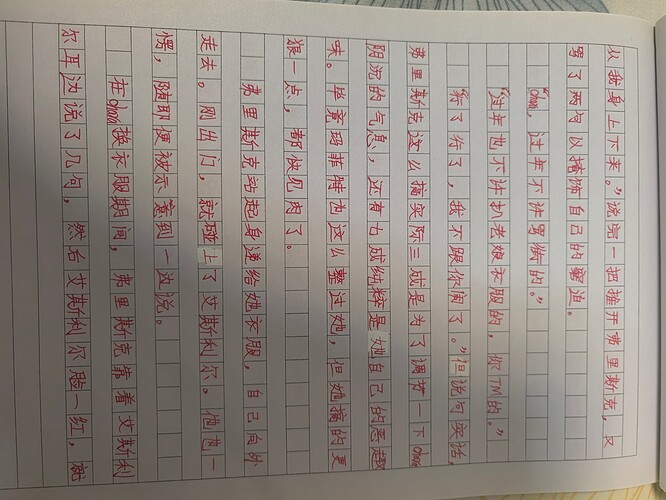 从我身上下来。”说完一把推开弗里斯克，又
骂了两句以掩饰自己的窘迫。
“chara，过年不许骂街的。”
“过年也不许扒老娘衣服的，你TM的。”
“行了行了，我不跟你闹了。”但说句实话，
弗里斯克这么搞实际三成是为了调节一下chara
阴沉的气息，还有七成纯粹是她自己的恶趣
味。毕竟玛菲特也这么整过她，但她搞的更
狠一点，都快见肉了。
弗里斯克站起身递给她衣服，自己向外
走去。刚出门，就碰上了艾斯利尔。他也一
愣，随即便被示意到一边说。
在chara换衣服期间，弗里斯克靠着艾斯利
尔耳边说了几句，然后艾斯利尔脸一红，就